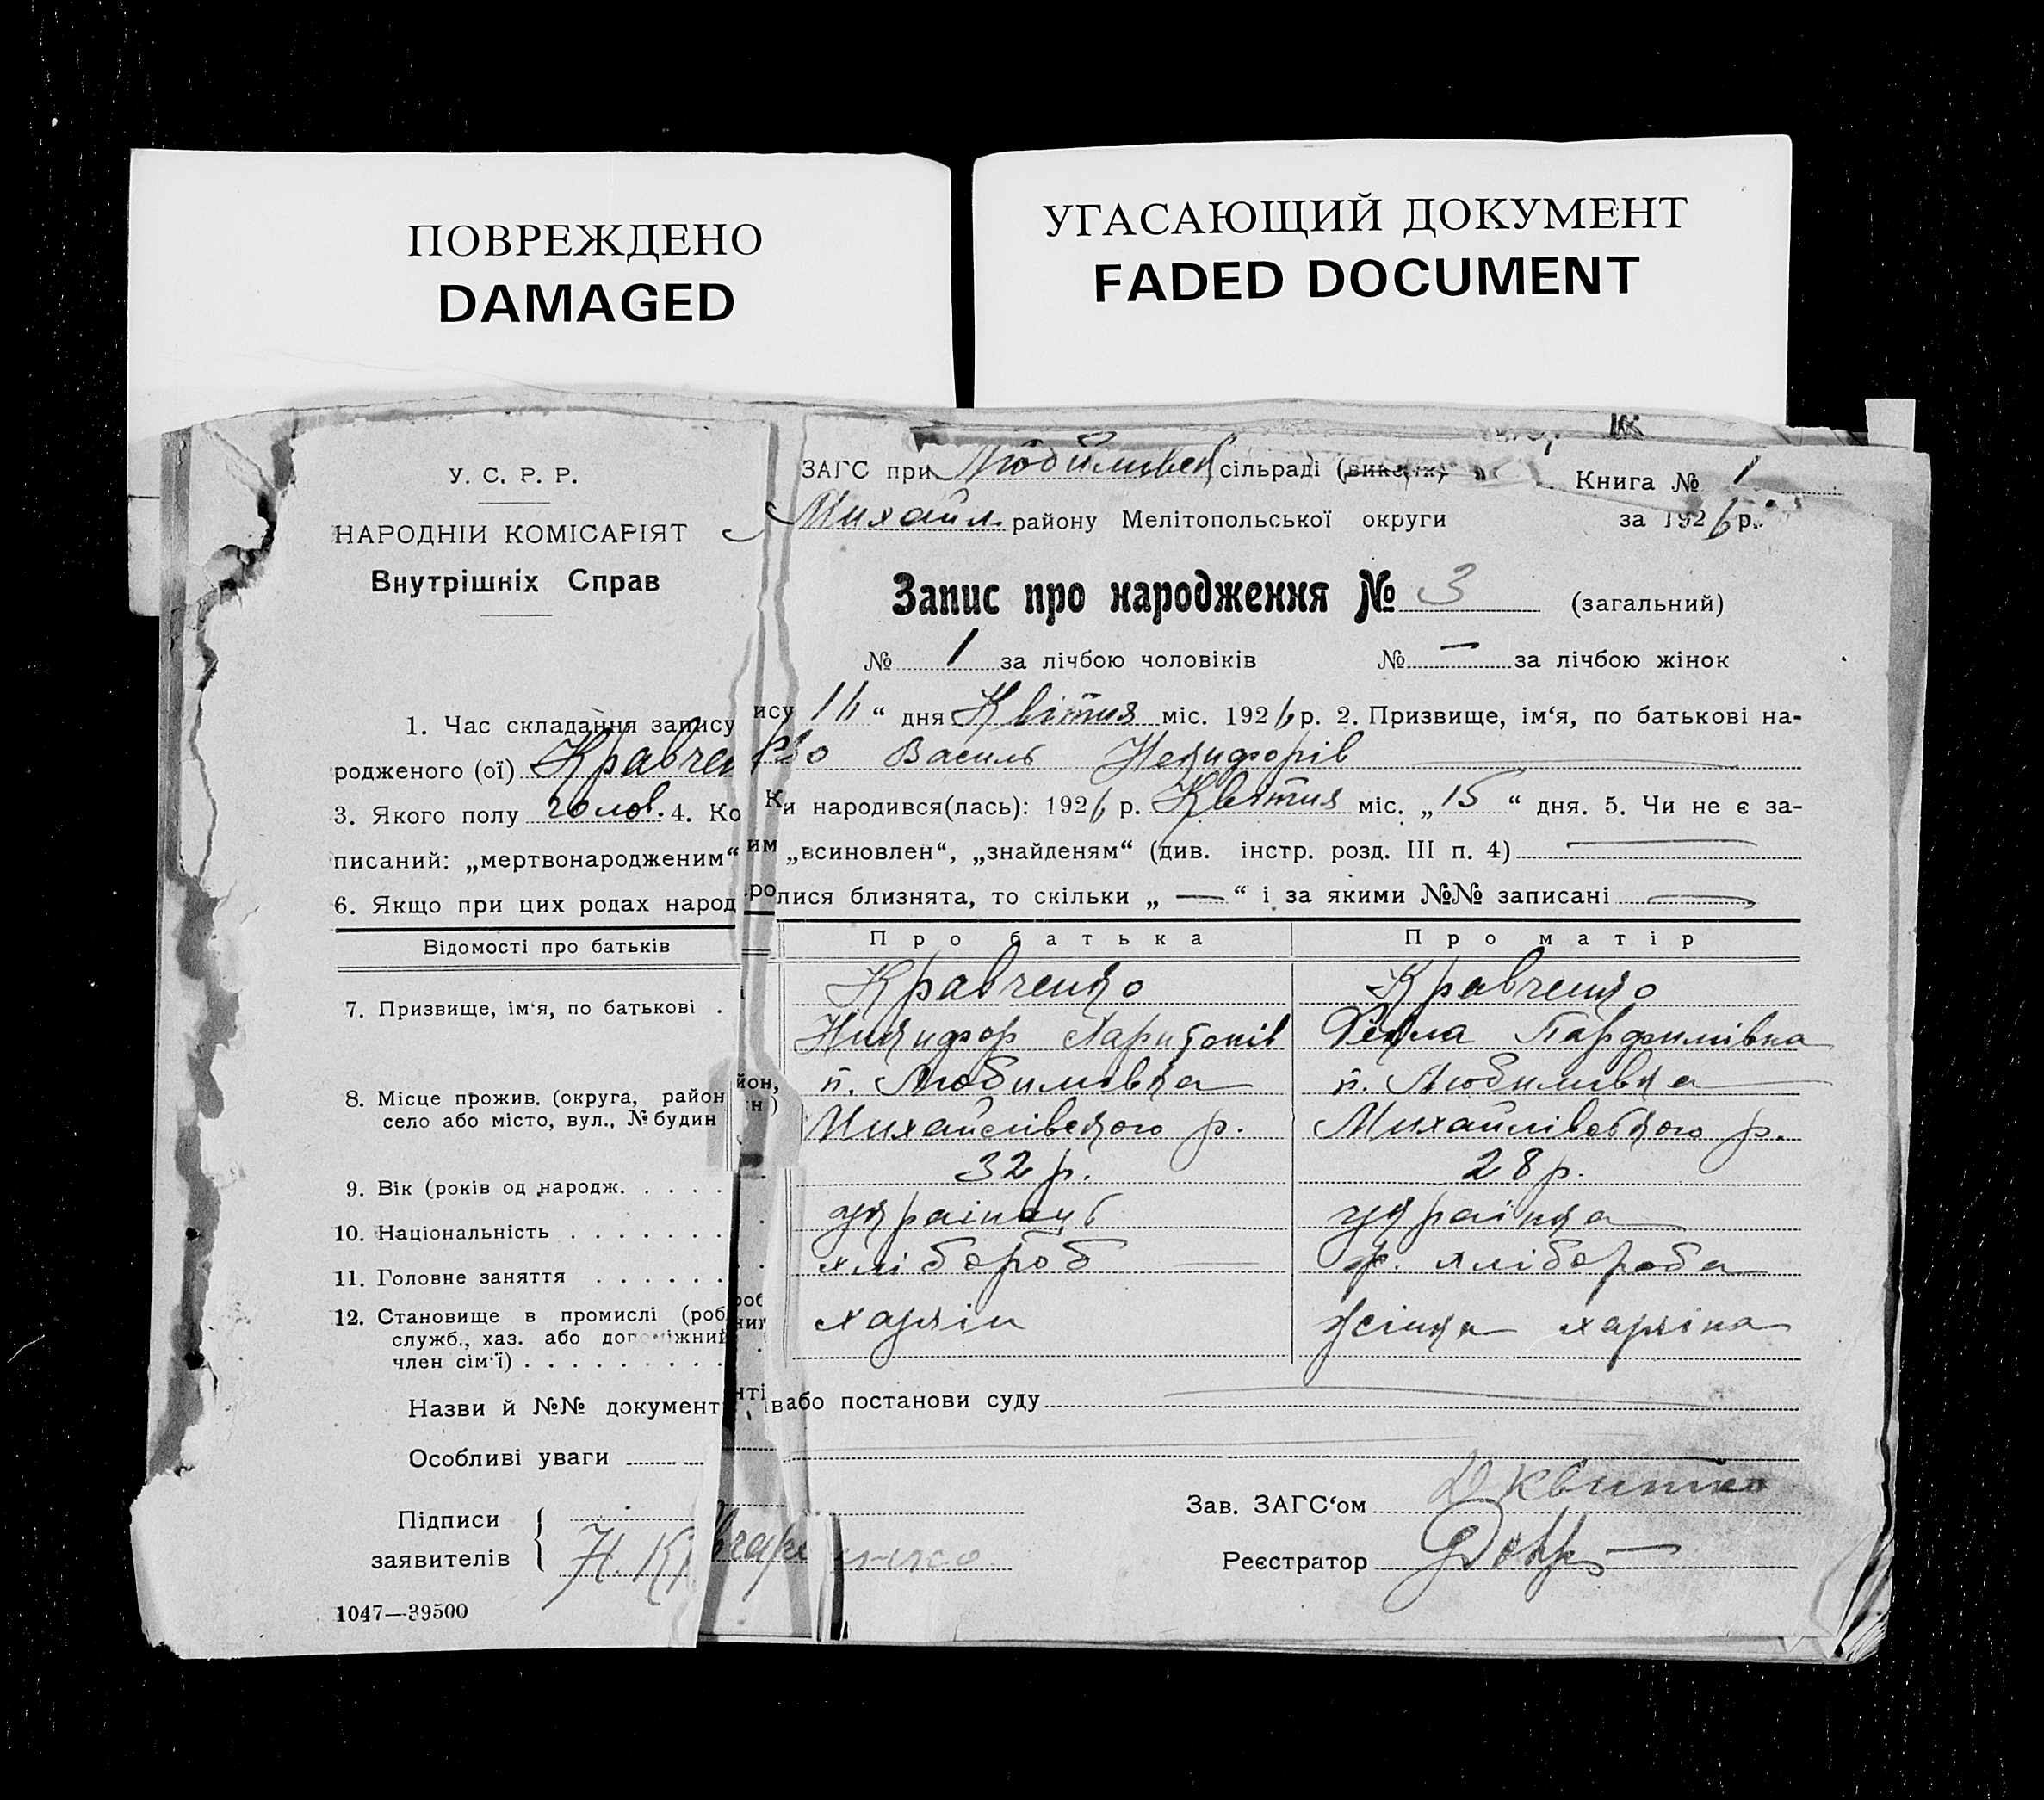 ПОВРЕЖДЕНО
DAMAGED
УГАСАЮЩИЙ ДОКУМЕНТ
FADED DOCUMENT
У. С. Р. Р.
НАРОДНІЙ КОМІСАРІЯТ
Внутрішніх Справ
ЗАГС при Любимівск сільраді (викон)
Книга № 1
Михайл. району Мелітопольської округи
за 1926 р.
Запис про народження № 3 (загальний)
№ 1 за лічбою чоловіків № — за лічбою жінок
1. Час складання запису 16 “ дня Квітня міс. 1926 р. 2. Призвище, ім‘я, по батькові на-
родженого (ої) Кравченко Василь Никифорів
3. Якого полу чолов. 4. Коли народився(лась): 1926 р. Квітня міс. „ 15 “ дня. 5. Чи не є за-
писаний: „мертвонародженим“ „всиновлен“, „знайденям“ (див. інстр. розд. III п. 4) —
6. Якщо при цих родах народилися близнята, то скільки „ — “ і за якими №№ записані —
Відомості про батьків Про батька Про матір
7. Призвище, ім‘я, по батькові . Кравченко Кравченко
Никифор Харитонів Фекла Парфимівна
8. Місце прожив. (округа, район, п. Любимівка п. Любимівка
село або місто, вул., № будин) Михайлівського р. Михайлівського р.
9. Вік (років од народж. . . . . 32 р. 28 р.
10. Національність . . . . . . . українець українка
11. Головне заняття . . . . . . хлібороб — ф. хлібороба
12. Становище в промислі (роб.
служб., хаз. або допоміжний хазяін жінка хазяіна
член сім‘ї) . . . . . . . . .
Назви й №№ документів або постанови суду
Особливі уваги
Зав. ЗАГС‘ом Квитко
Підписи
заявителів Н. Кравченко
Реєстратор
1047—39500